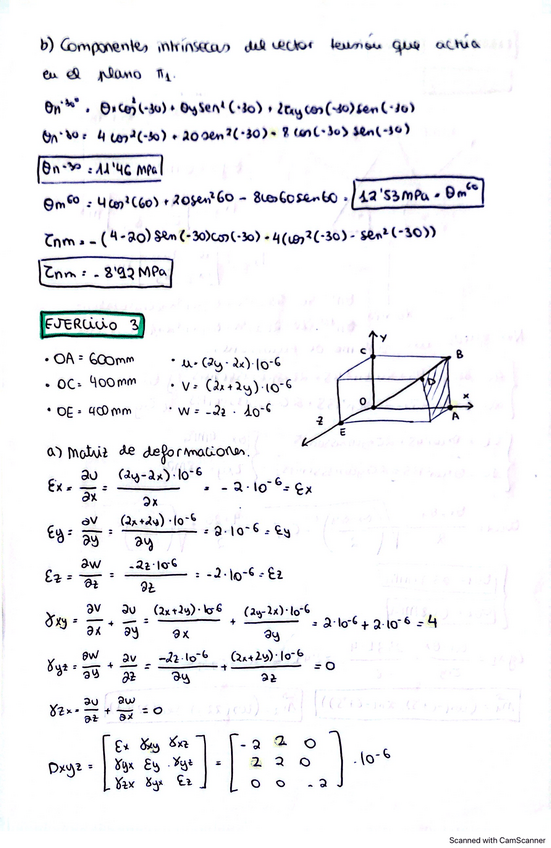 b) Componentes intrínsecas del vector tensión que actúa
en el plano π1.
θn-30° = θxcos²(-30) + θysen²(-30) + 2τxycos(-30)sen(-30)
θn-30 = 4cos²(-30) + 20sen²(-30) - 8cos(-30)sen(-30)
θn-30 = 11'46 MPa
θm60 = 4cos²(60) + 20sen²60 - 8cos60sen60 = 12'53MPa = θm60
τnm = -(4-20)sen(-30)cos(-30) - 4(cos²(-30) - sen²(-30))
τnm = -8'92 MPa
EJERCICIO 3
• OA = 600mm • u = (2y-2x)·10-6
• OC = 400mm • v = (2x+2y)·10-6
• OE = 400mm • w = -2z · 10-6
y
C
B
D
O
x
A
z
E
a) Matriz de deformaciones.
εx = ∂u/∂x = (2y-2x)·10-6/∂x = -2·10-6 = εx
εy = ∂v/∂y = (2x+2y)·10-6/∂y = 2·10-6 = εy
εz = ∂w/∂z = -2z·10-6/∂z = -2·10-6 = εz
γxy = ∂v/∂x + ∂u/∂y = (2x+2y)·10-6/∂x + (2y-2x)·10-6/∂y = 2·10-6 + 2·10-6 = 4
γyz = ∂w/∂y + ∂v/∂z = -2z·10-6/∂y + (2x+2y)·10-6/∂z = 0
γzx = ∂u/∂z + ∂w/∂x = 0
εx γxy γxz - 2 2 0
Dxyz = γyx εy γyz = 2 2 0 · 10-6
γzx γyx εz 0 0 -2
Scanned with CamScanner